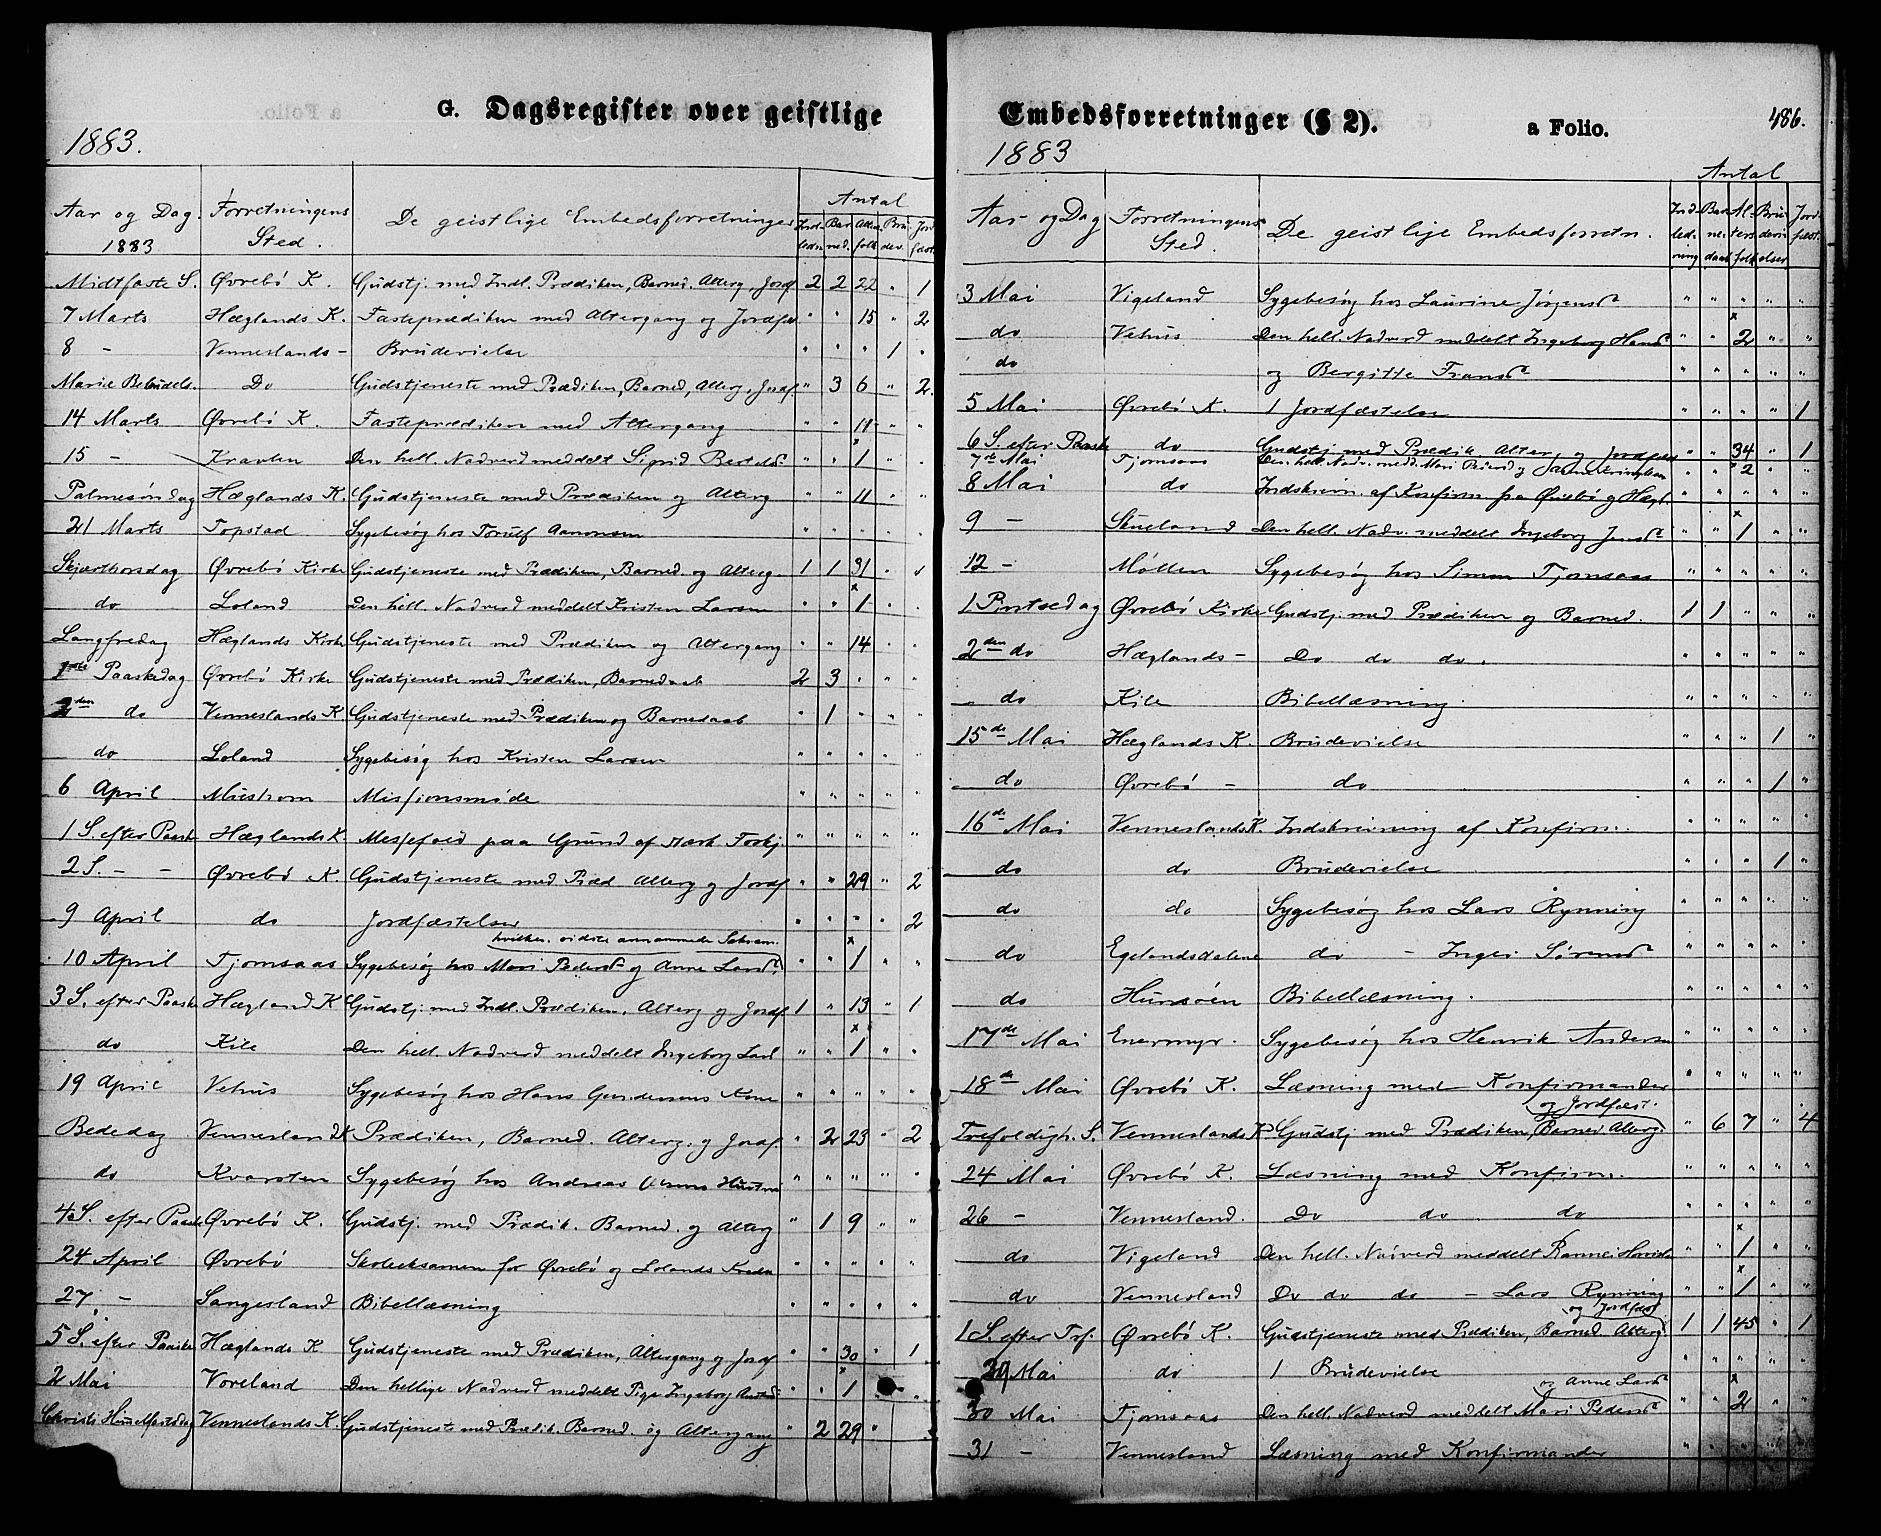 G. Dagsregister over geistlige
1883.
Aar og Dag. 1883 Forretningens Sted. De geistlige Embedsforretninger Antal
Indledn. Barned. Alterfolk Brudev. Jordfæst.
Midtfaste S. Øvrebö K. Gudstj. med Indl. Prædiken, Barned. Alterg. Jordf 2 2 22 " 1
7 Marts Hæglands K. Fasteprædiken med Altergang og Jordfæ. " " 15 " 2
8 - Venneslands - Brudevielse " " " 1 "
Marie Bebudels. Do Gudstjeneste med Prædiken, Barned, Alterg, Jordf. " 3 6 " 2.
14 Marts Øvrebö K. Fasteprædiken med Altergang " " 11 " "
15 - Kravlen Den hell. Nadverd meddelt Sigrid Bertelsd " " x 1 " "
Palmesøndag Hæglands K. Gudstjeneste med Prædiken og Alterg " " 11 " "
21 Marts Topstad Sygebesøg hos Torulf Aanonsen " " " " "
Skjærthorsdag Øvrebö Kirke Gudstjeneste med Prædiken, Barned. og Alterg. 1 1 31 " "
do Loland Den hell. Nadverd meddelt Kristen Larsen " " x 1 " "
Langfredag Hæglands Kirke Gudstjeneste med Prædiken og Altergang " " 14 " "
1ste Paaskedag Øvrebö Kirke Gudstjeneste med Prædiken, Barnedaab 2 3 " " "
2den do Venneslands K Gudstjeneste med Prædiken og Barnedaab " 1 " " "
do Loland Sygebesøg hos Kristen Larsen " " " " "
6 April Mushom Missionsmøde " " " " "
1 S. efter Paaske Hæglands K. Messefald paa Grund af stærk Forkj. " " " " "
2 S. - - Øvrebö K. Gudstjeneste med Præd Alterg og Jordf " " 29 " 2
9 April do Jordfæstelser " " " " 2
hvilken sidste annammede Sakram.
10 April Tjomsaas Sygebesøg hos Mari Pedersd og Anne Larsd. " " x 1 " "
3 S. efter Paaske Hægland K Gudstj. med Indl. Prædiken, Alterg og Jordf 1 " 13 " 1
do Kile Den hell. Nadverd meddelt Ingeborg Larsd " " x 1 " "
19 April Vehus Sygebesøg hos Hans Gundersens Kone " " " " "
Bededag Vennesland K Prædiken, Barned. Alterg. og Jordf. " 2 23 " 2
do Kvarsten Sygebesøg hos Andreas Hustru " " " " "
4 S. efter Paaske Øvrebö K. Gudstj. med Prædik. Barned. og Alterg " 1 9 " "
24 April Øvrebö Skoleeksamen for Øvrebö og Lolands Kreds " " " " "
27 - Sangesland Bibellæsning " " " " "
5 S. efter Paaske Hæglands K Gudstjeneste med Prædiken, Altergang og Jordf " " 30 " 1
2 Mai Voreland Den hellige Nadverd meddelt Pige Ingeborg " " x 1 "
Christi Himmelfartsdag Venneslands K Gudstjeneste med Prædik. Barned. og Altergang " 2 29 "
Embedsforretninger (§ 2). a Folio. 486.
1883
Aar- og Dag Forretningens Sted. De geistlige Embedsforretn. Antal
Indledning Barnedaab Altersfolk Brudevielser Jordfæst.
3 Mai Vigeland Sygebesøg hos Laurine Jørgensd " " " " "
do Vehus Den hell. Nadverd meddelt Ingeborg Hansd " " x 2 " "
do og Bergitte Fransd " " " " "
5 Mai Øvrebö K. 1 Jordfæstelse " " " " 1
6 S. efter Paaske do Gudstj med Prædik Alter, og Jordfæst " " 34 " 1
7de Mai Tjomsaas Den hell. Nadv. medd. Mari Pedersd og " " x 2 " "
8 Mai do Indskrivn. af Konfirm fra Øvrebö og Hægl. " " " " "
9 - Skueland Den hell. Nadv. meddelt Ingeborg Jensd " " x 1 " "
12 - Møllen Sygebesøg hos Simon Tjomsaas " " " " "
1 Pintsedag Øvrebö Kirke Gudstj. med Prædiken og Barned. 1 1 " " "
2den do Hæglands - Do do do. " " " " "
do Kile Bibellæsning. " " " " "
15de Mai Hæglands K. Brudevielse " " " 1 "
do Øvrebö - do " " " 1 "
16de Mai Venneslands K. Indskrivning af Konfirm. " " " " "
do do Brudevielse " " " 1 "
do do Sygebesøg hos Lars Rynning " " " " "
do Egelandsdalene do - Inger Sørensd " " " " "
do Hunsöen Bibellæsning. " " " " "
17de Mai Enermyr. Sygebesøg hos Henrik Andersen " " " " "
18de Mai Øvrebö K. Læsning med Konfirmander " " " " "
og Jordfæst.
Trefoldigh. S. Venneslands K Gudstj med Prædiken, Barned Alterg. " 6 7 " 4
24 Mai Øvrebö K. Læsning med Konfirm. " " " " "
26 - Vennesland. Do do do " " " " "
do Vigeland Den hell. Nadverd meddelt Rannei " " x 1 " "
do Vennesland Do do do - Lars Rynning " " x 1 " "
og Jordfæst
1 S. efter Trf. Øvrebö K. Gudstjeneste med Prædiken, Barned Alterg. 1 1 45 " 1
29 Mai do 1 Brudevielse " " " " "
og Anne Larsd
30 Mai Tjomsaas Den hell. Nadverd meddelt Mari Pedersd " " x 2 " "
31 - Vennesland Læsning med Konfirmander " " " " "